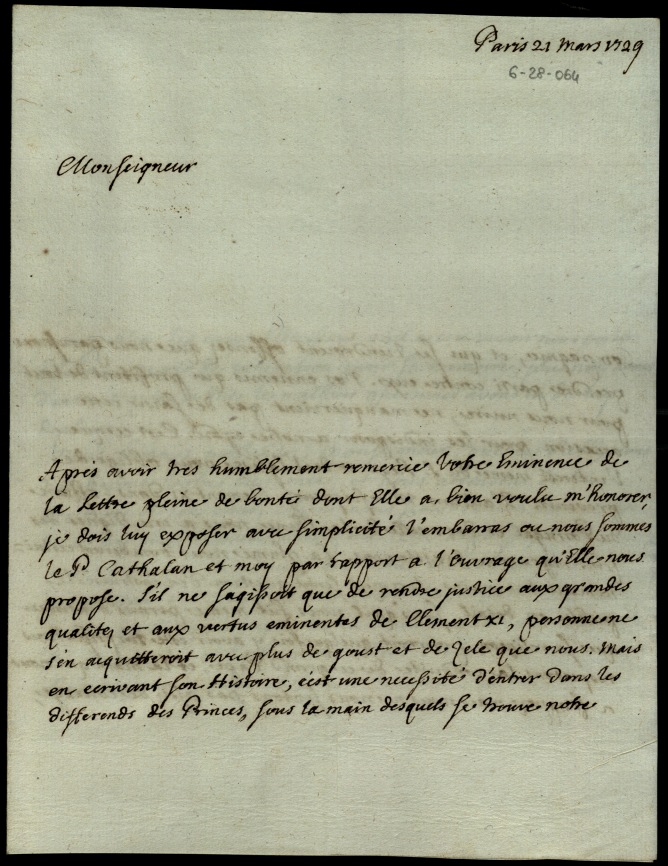 Paris 21 mars 1729
6-28-064
Monseigneur
Après avoir tres humblement remercie Votre Eminence de
la Lettre pleine de bonté dont Elle a bien voulu m'honorer,
je dois luy exposer avec simplicité l'embarras ou nous sommes
le P. Cathalan et moy par rapport a l'Ouvrage qu'Elle nous
propose. S'il ne s'agissoit que de rendre justice aux grandes
qualitez et aux vertus eminentes de Clement XI, personne ne
s'en acquitteroit avec plus de goust et de zele que nous. mais
en ecrivant son Histoire, c'est une necessité d'entrer dans les
differends des Princes, sous la main desquels se trouve notre